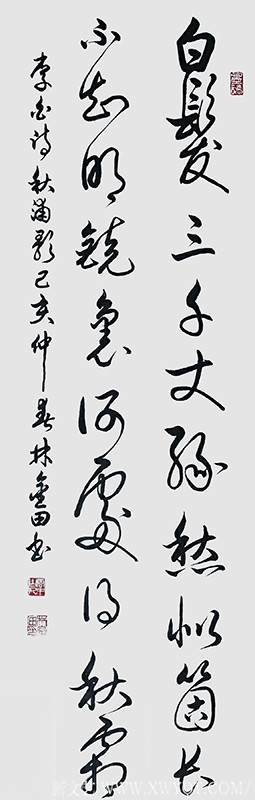 白髮三千丈緣愁似箇長
不知明鏡裏何處得秋霜
李白詩秋浦歌己亥仲春林金田書